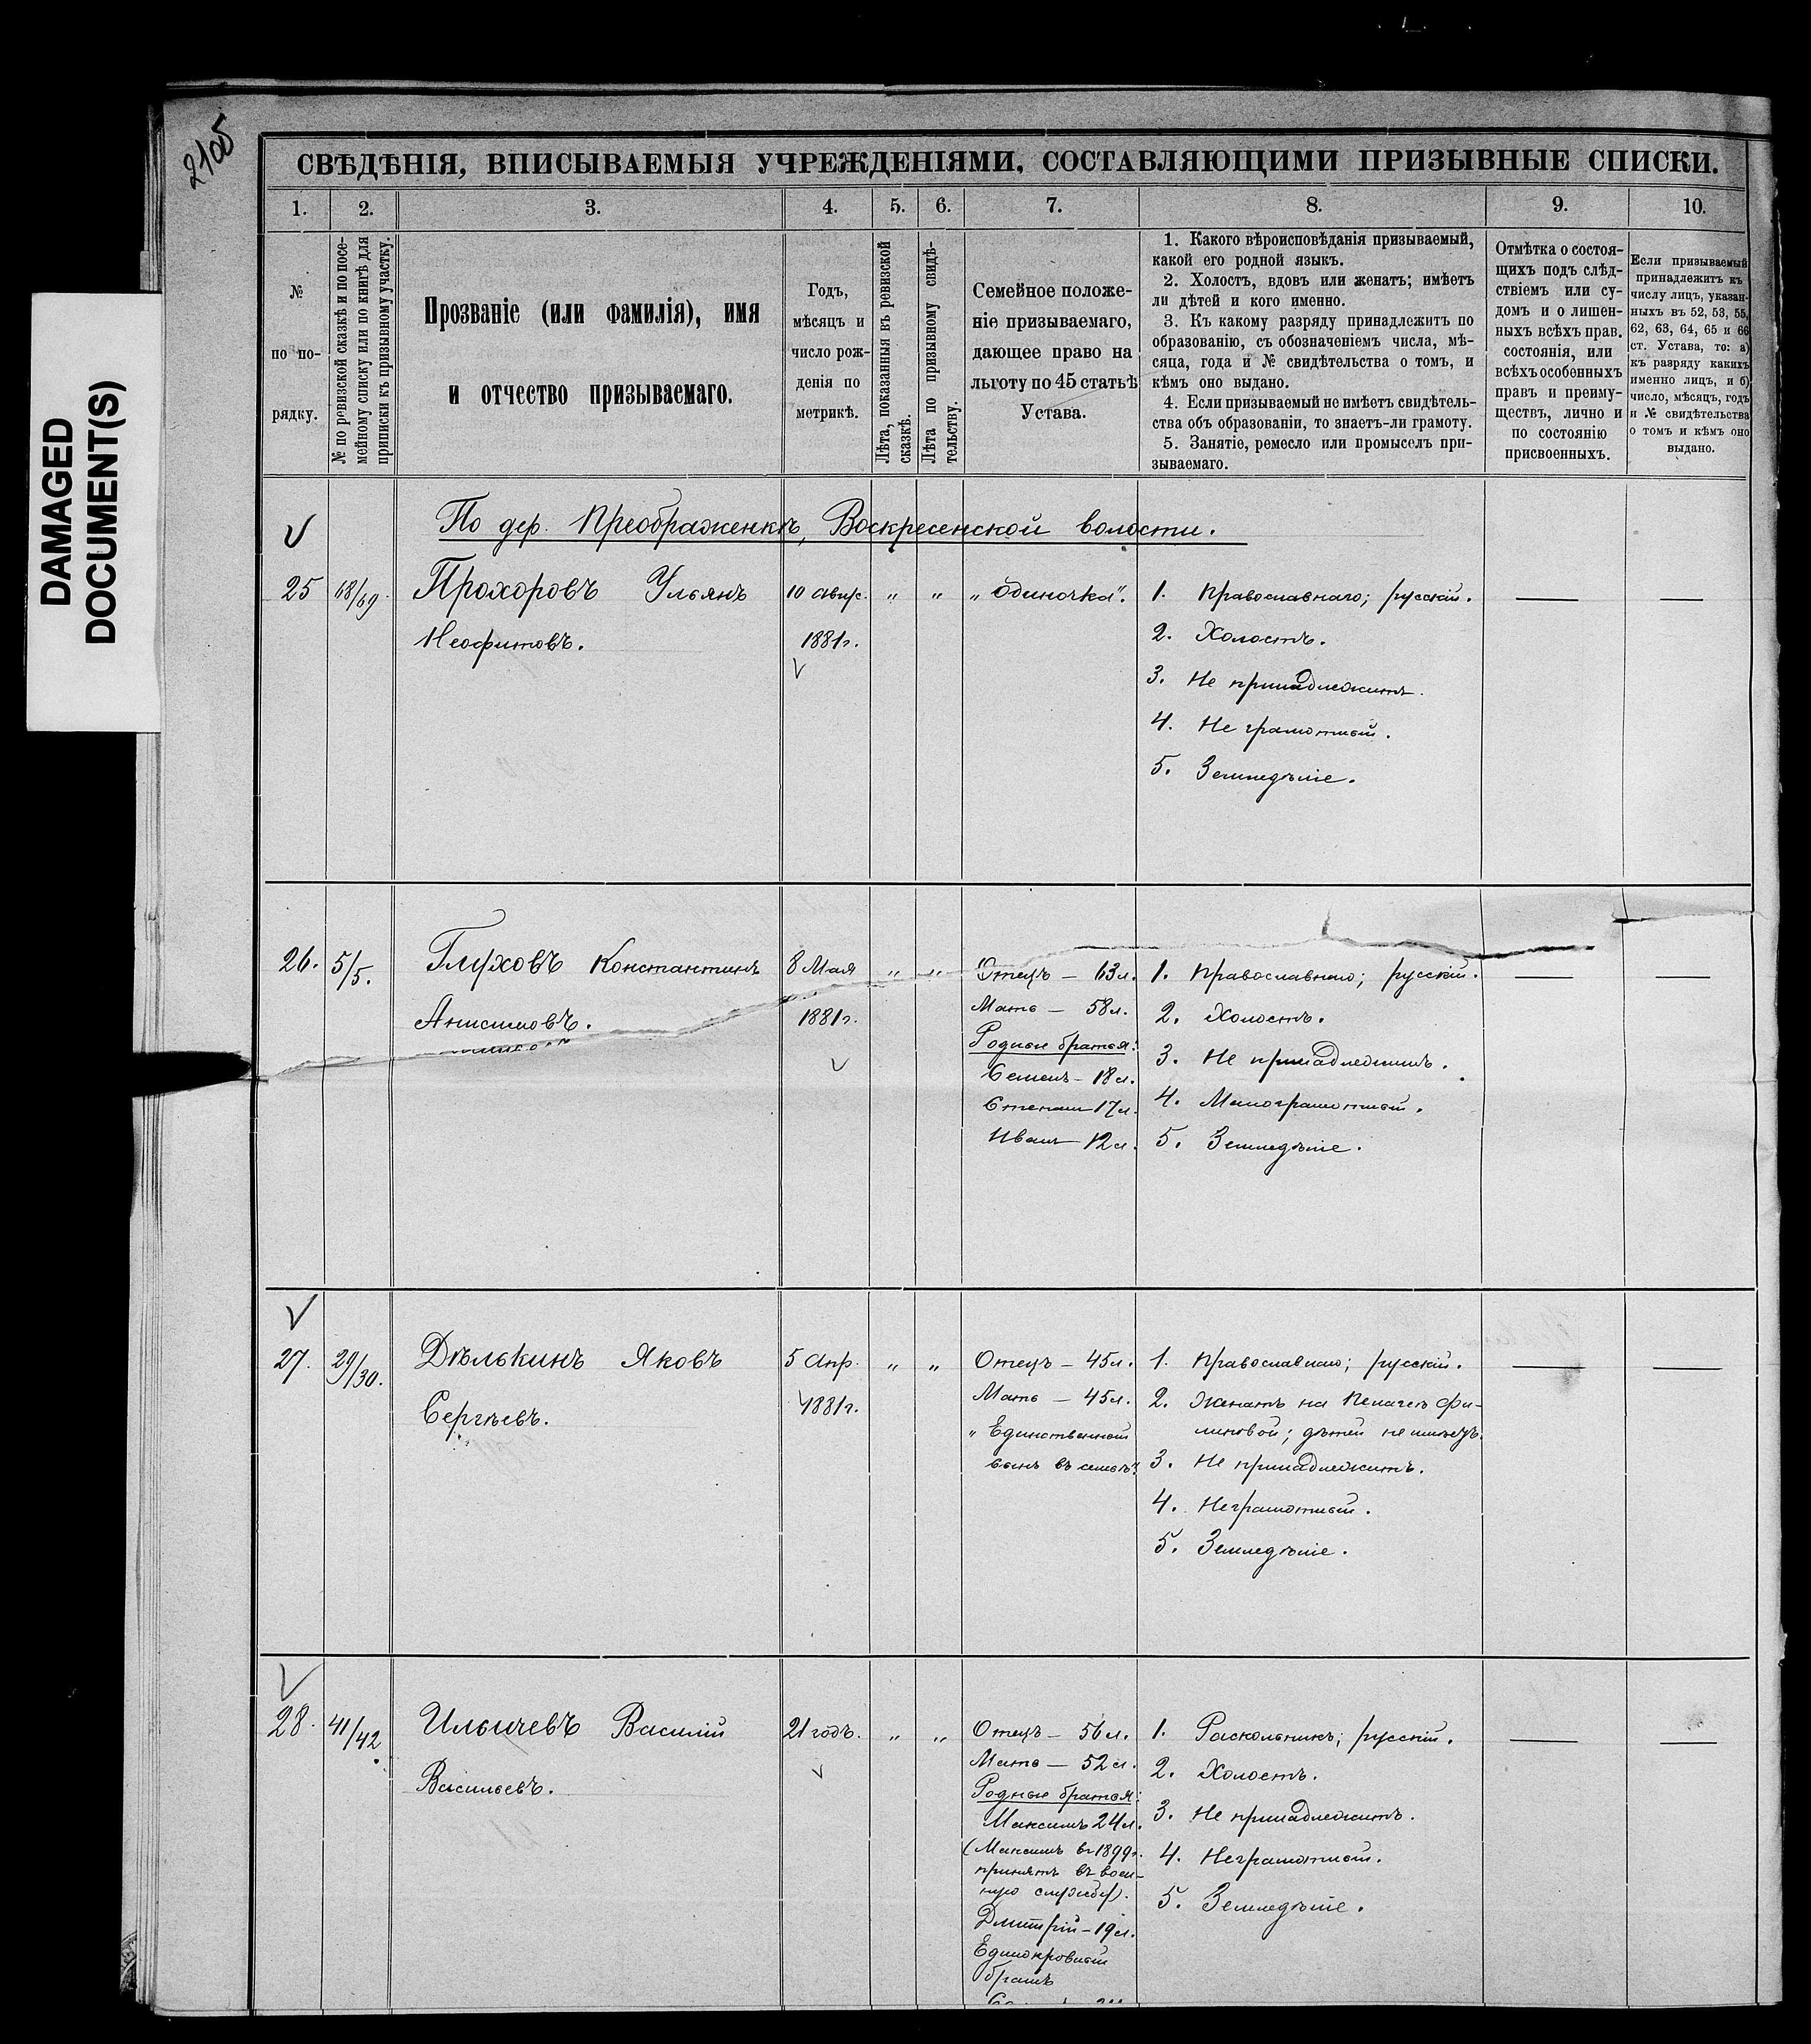 2105
DAMAGED
DOCUMENT(S)
СВѢДѢНІЯ, ВПИСЫВАЕМЫЯ УЧРЕЖДЕНІЯМИ, СОСТАВЛЯЮЩИМИ ПРИЗЫВНЫЕ СПИСКИ.
1. 2. 3. 4. 5. 6. 7. 8. 9. 10.
№
по по-
рядку.
№ по ревизской сказкѣ и по посе-
мейному списку или по книгѣ для
приписки къ призывному участку.
Прозваніе (или фамилія), имя
и отчество призываемаго.
Годъ,
мѣсяцъ и
число рож-
денія по
метрикѣ.
Лѣта, показанныя въ ревизской
сказкѣ.
Лѣта по призывному свидѣ-
тельству.
Семейное положе-
ніе призываемаго,
дающее право на
льготу по 45 статьѣ
Устава.
1. Какого вѣроисповѣданія призываемый,
какой его родной языкъ.
2. Холостъ, вдовъ или женатъ; имѣетъ
ли дѣтей и кого именно.
3. Къ какому разряду принадлежитъ по
образованію, съ обозначеніемъ числа, мѣ-
сяца, года и № свидѣтельства о томъ, и
кѣмъ оно выдано.
4. Если призываемый не имѣетъ свидѣтель-
ства объ образованіи, то знаетъ-ли грамоту.
5. Занятіе, ремесло или промыселъ при-
зываемаго.
Отмѣтка о состоя-
щихъ подъ слѣд-
ствіемъ или су-
домъ и о лишен-
ныхъ всѣхъ прав.
состоянія, или
всѣхъ особенныхъ
правъ и преиму-
ществъ, лично и
по состоянію
присвоенныхъ.
Если призываемый
принадлежитъ къ
числу лицъ, указан-
ныхъ въ 52, 53, 55,
62, 63, 64, 65 и 66
ст. Устава, то: а)
къ разряду какихъ
именно лицъ, и б)
число, мѣсяцъ, годъ
и № свидѣтельства
о томъ и кѣмъ оно
выдано.
По дер. Преображенкѣ, Воскресенской волости.
25 68/69. Прохоровъ Ульянъ
Неофитовъ.
10 Авгус.
1881г.
„ „
„одиночка".
1. Православнаго; русскій.
2. Холостъ.
3. Не принадлежитъ.
4. Не грамотный.
5. Земледѣліе.
26. 5/5. Глуховъ Константинъ
Анисимовъ.
8 Мая
1881г.
„ „
Отецъ – 63л.
Мать – 58л.
Родные братья:
Семенъ – 18л.
Степанъ 17л.
Иванъ – 12л.
1. Православнаго; русскій.
2. Холостъ.
3. Не принадлежитъ.
4. Малограмотный.
5. Земледѣліе.
27. 29/30. Дѣлькинъ Яковъ
Сергѣевъ.
5 Апр.
1881г.
„ „
Отецъ – 45л.
Мать – 45л.
„Единственный
сынъ въ семьѣ".
1. Православнаго; русскій.
2. Женатъ на Пелагеѣ Фи-
липовой; дѣтей не имѣетъ.
3. Не принадлежитъ.
4. Неграмотный.
5. Земледѣліе.
28. 41/42. Ильичевъ Василій
Васильевъ.
21 годъ.
„ „
Отецъ – 56л.
Мать – 52л.
Родные братья:
Максимъ 24л.
(Максимъ въ 1899г.
принятъ въ воен-
ную службу).
Дмитрій – 19л.
Единокровный
братъ
1. Раскольникъ; русскій.
2. Холостъ.
3. Не принадлежитъ.
4. Неграмотный.
5. Земледѣліе.